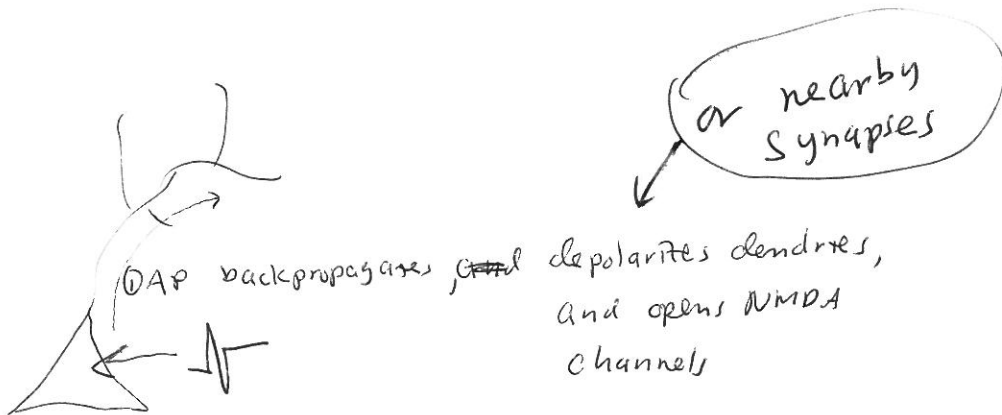 or nearby
synapses
①AP backpropagates, depolarizes dendrites,
and opens NMDA
channels